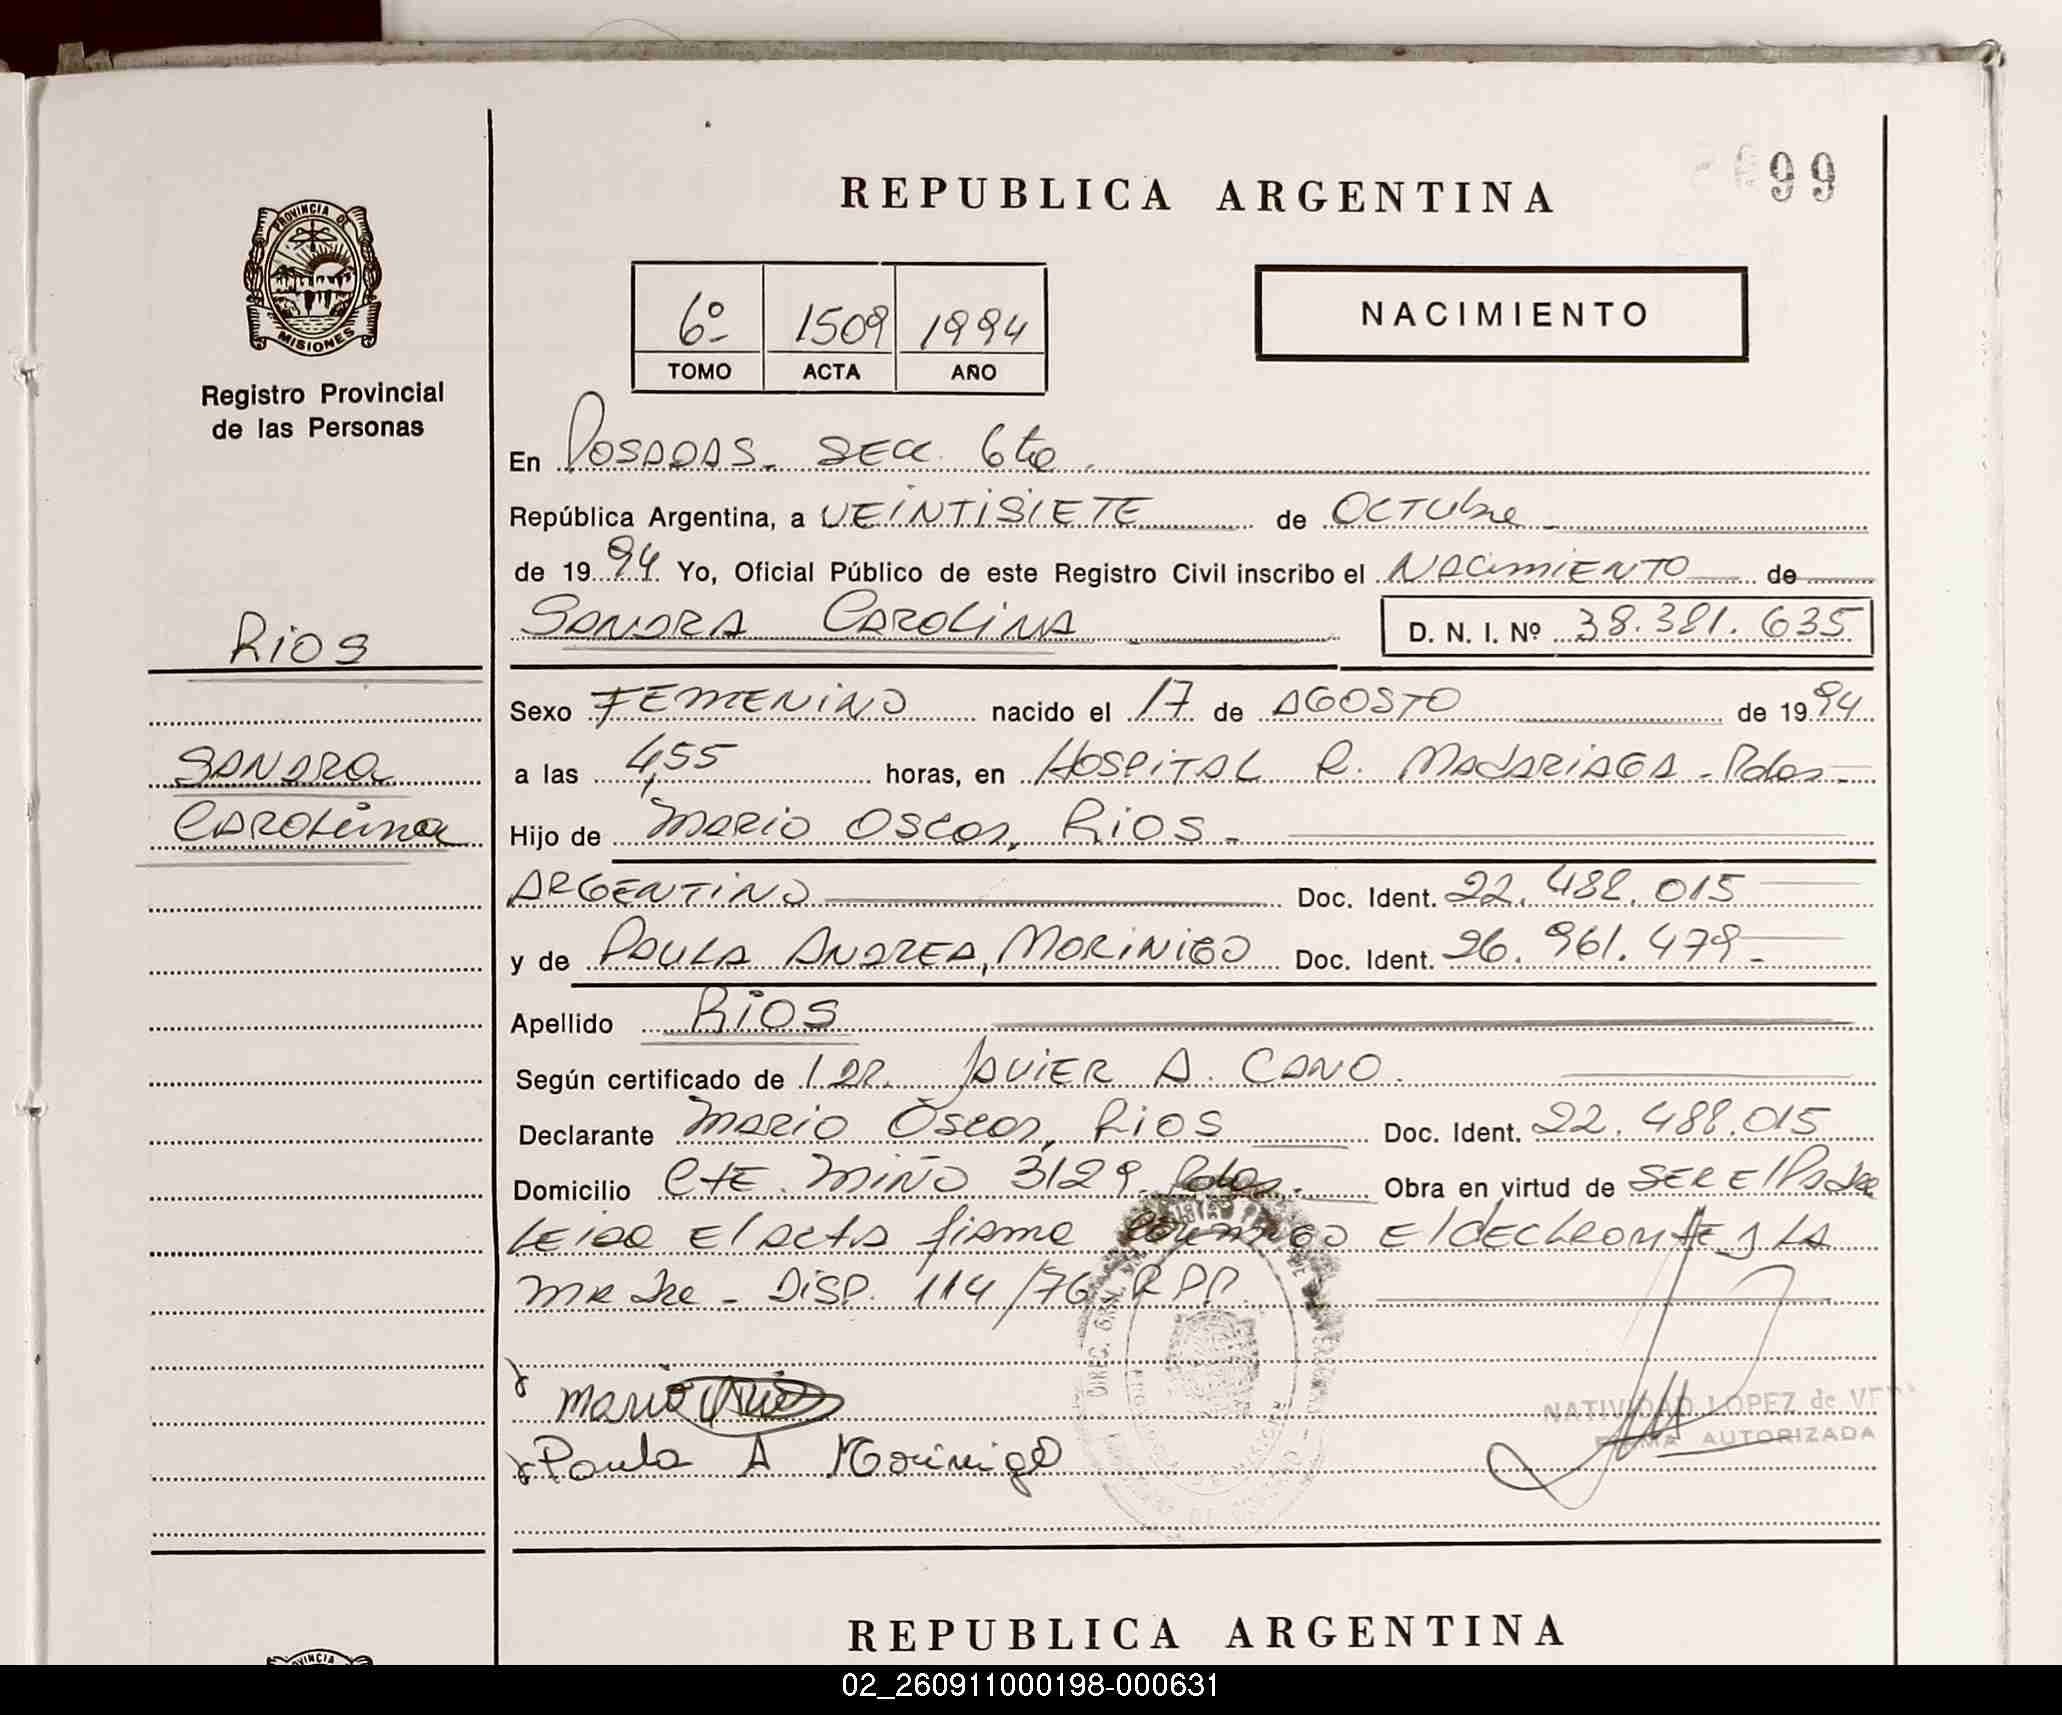 REPUBLICA ARGENTINA
99
PROVINCIA DE
MISIONES
Registro Provincial
de las Personas
6º
1509
1994
TOMO
ACTA
AÑO
NACIMIENTO
En Posadas. Secc. 6ta.
República Argentina, a VEINTISIETE de OCTUbre
de 1994 Yo, Oficial Público de este Registro Civil inscribo el NACIMIENTO de
SANDRA CAROLINA
D. N. I. Nº 38.381.635
RIOS
SANDRA
CAROLINA
Sexo FEMENINO nacido el 17 de AGOSTO de 1994
a las 4,55 horas, en HOSPITAL R. MADARIAGA - Pdas -
Hijo de MARIO OSCAR, RIOS -
ARGENTINO Doc. Ident. 22.488.015
y de PAULA ANDREA, MORINIGO Doc. Ident. 26.961.479 -
Apellido RIOS
Según certificado de 1 DR. JAVIER A. CANO.
Declarante MARIO OSCAR, RIOS Doc. Ident. 22.488.015
Domicilio Cte. MIÑO 3129. Pdas. Obra en virtud de SER El PAdre
LEIDA El ActA firma conmigo El dECLARANTE y LA
MAdre - DISP. 114/76 RPP.
Mario Rios
Paula A Morinigo
NATIVIDAD LOPEZ de
FIRMA AUTORIZADA
REPUBLICA ARGENTINA
02_260911000198-000631